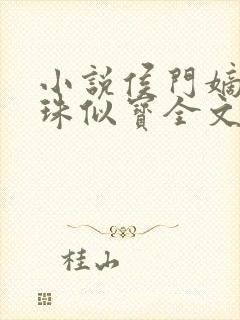 小說侯門嫡
珠似寶全文
桂山